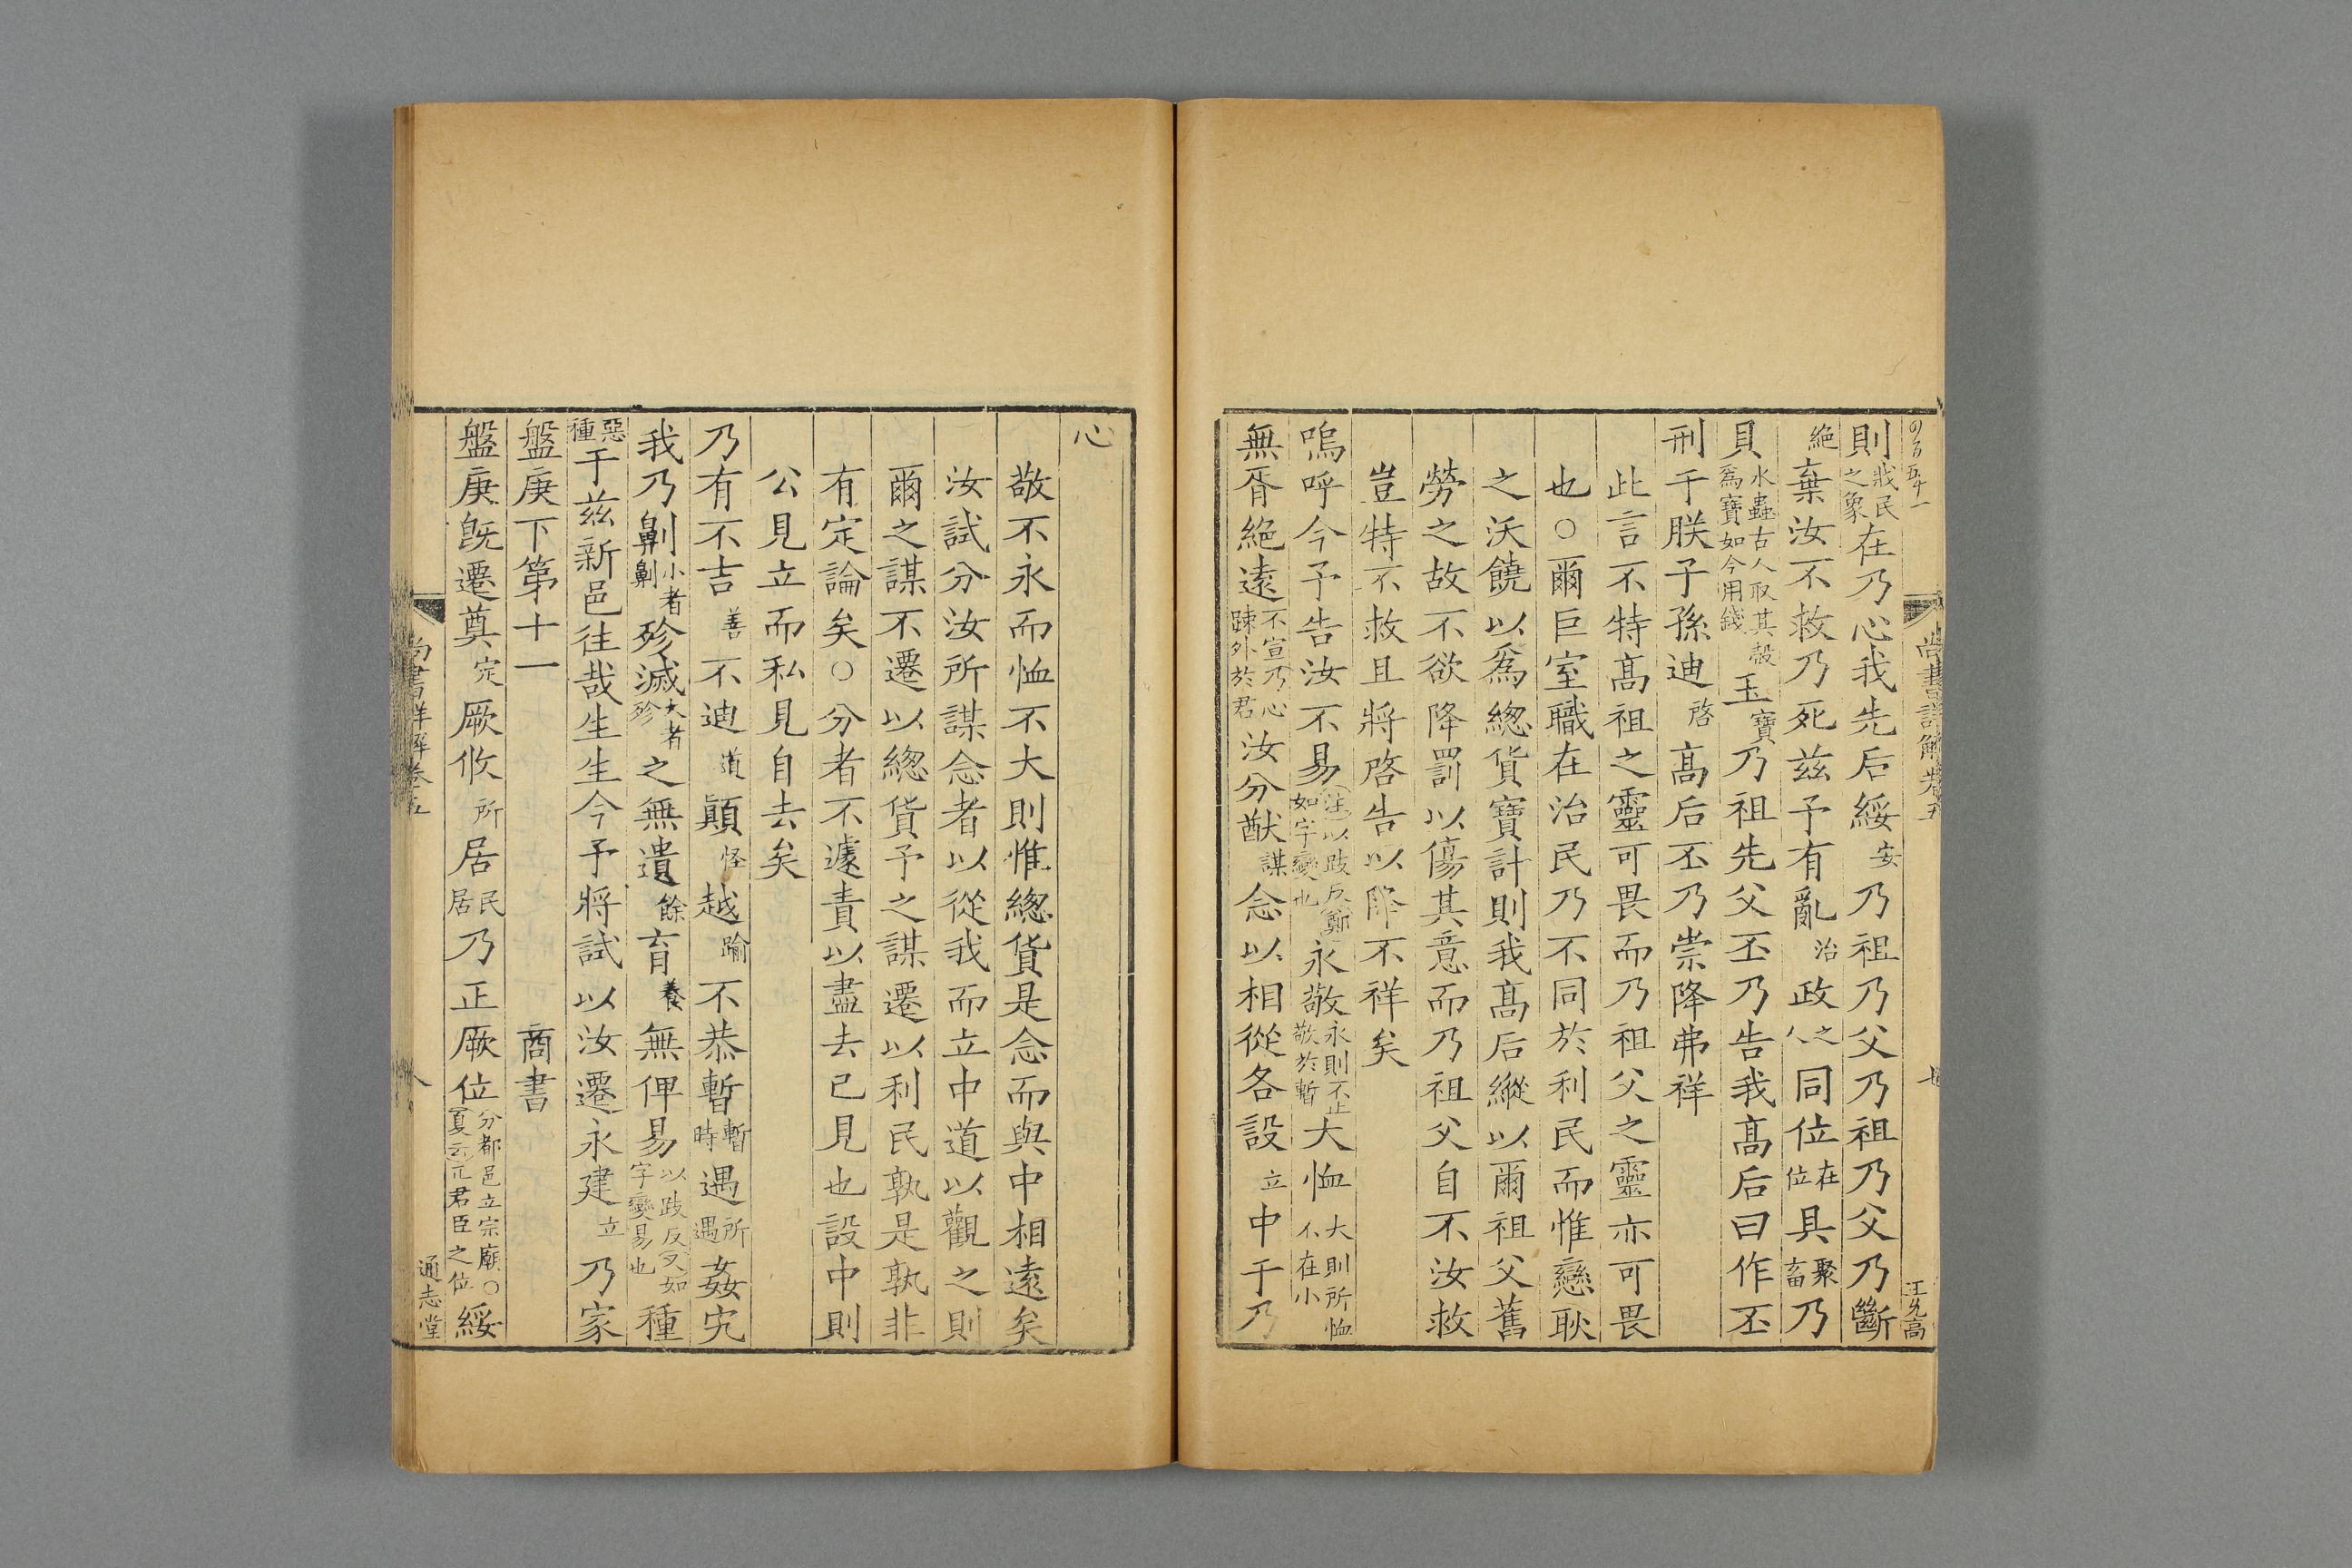 尚書詳解卷五
七
王允高
則戕民之象在乃心我先后綏安乃祖乃父乃祖乃父乃斷
絶棄汝不救乃死兹予有亂治政之人同位在位具聚畜乃
貝水蟲古人取其殼爲寶如今用錢玉寶乃祖先父丕乃告我髙后曰作丕
刑于朕子孫迪啓髙后丕乃崇降弗祥
此言不特髙祖之靈可畏而乃祖父之靈亦可畏
也○爾巨室職在治民乃不同於利民而惟戀耿
之沃饒以爲緫貨寶計則我髙后縱以爾祖父舊
勞之故不欲降罰以傷其意而乃祖父自不汝救
豈特不救且將啓告以降不祥矣
嗚呼今予告汝不易注以豉反鄭如字變也永敬永則不止敬於暫大恤大則所恤不在小
無胥絶遠不宣乃心踈外於君汝分猷謀念以相從各設立中于乃
心
敬不永而恤不大則惟緫貨是念而與中相遠矣
汝試分汝所謀念者以從我而立中道以觀之則
爾之謀不遷以緫貨予之謀遷以利民孰是孰非
有定論矣○分者不遽責以盡去已見也設中則
公見立而私見自去矣
乃有不吉善不迪道顛怪越踰不恭暫暫時遇所遇姦宄
我乃劓小者劓殄滅大者殄之無遺餘育養無俾易以豉反又如字變易也種
惡種于兹新邑往哉生生今予將試以汝遷永建立乃家
盤庚下第十一 商書
盤庚旣遷奠定厥攸所居民居乃正厥位分都邑立宗廟○夏云正君臣之位綏
尚書詳解卷五
八
通志堂